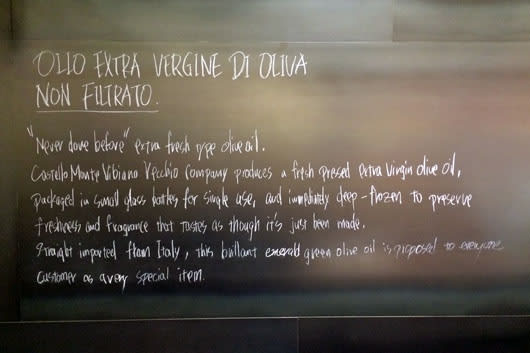 OLIO EXTRA VERGINE DI OLIVA
NON FILTRATO.
"Never done before" extra fresh type olive oil.
Castello Monte Vibiano Vecchio Company produces a fresh presed extra virgin olive oil,
packaged in small glass bottles for single use, and immediately deep-frozen to preserve
freshness and fragrance that tastes as though it's just been made.
Straight imported from Italy, this brillant emerald green olive oil is proposed to everyone
customer as a very special item.